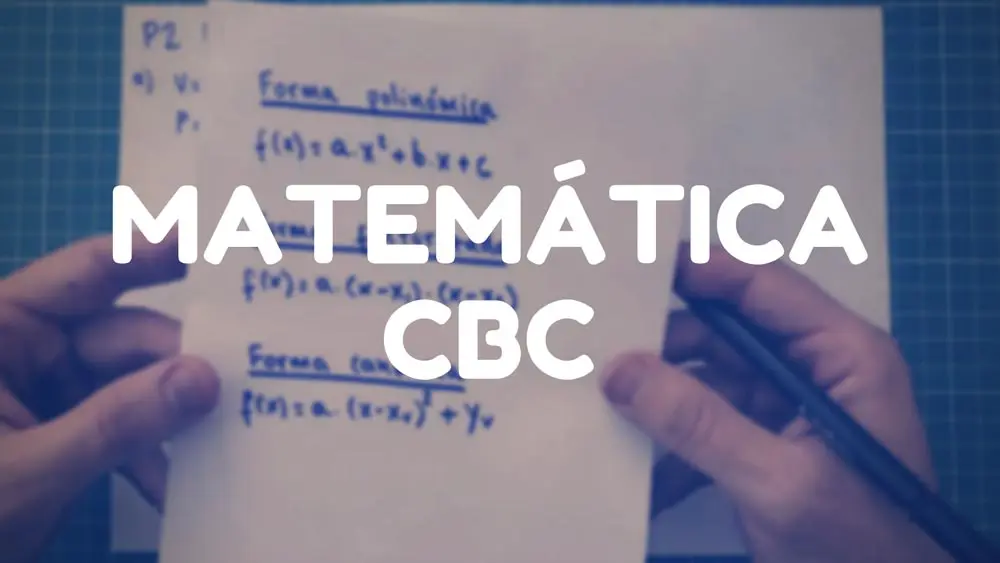 P2
a) V=
P=
Forma polinómica
f(x) = a.x² + b.x + c
MATEMÁTICA
f(x) = a.(x-x₁).(x-x₂)
CBC
Forma
f(x) = a.(x-xᵥ)² + yᵥ